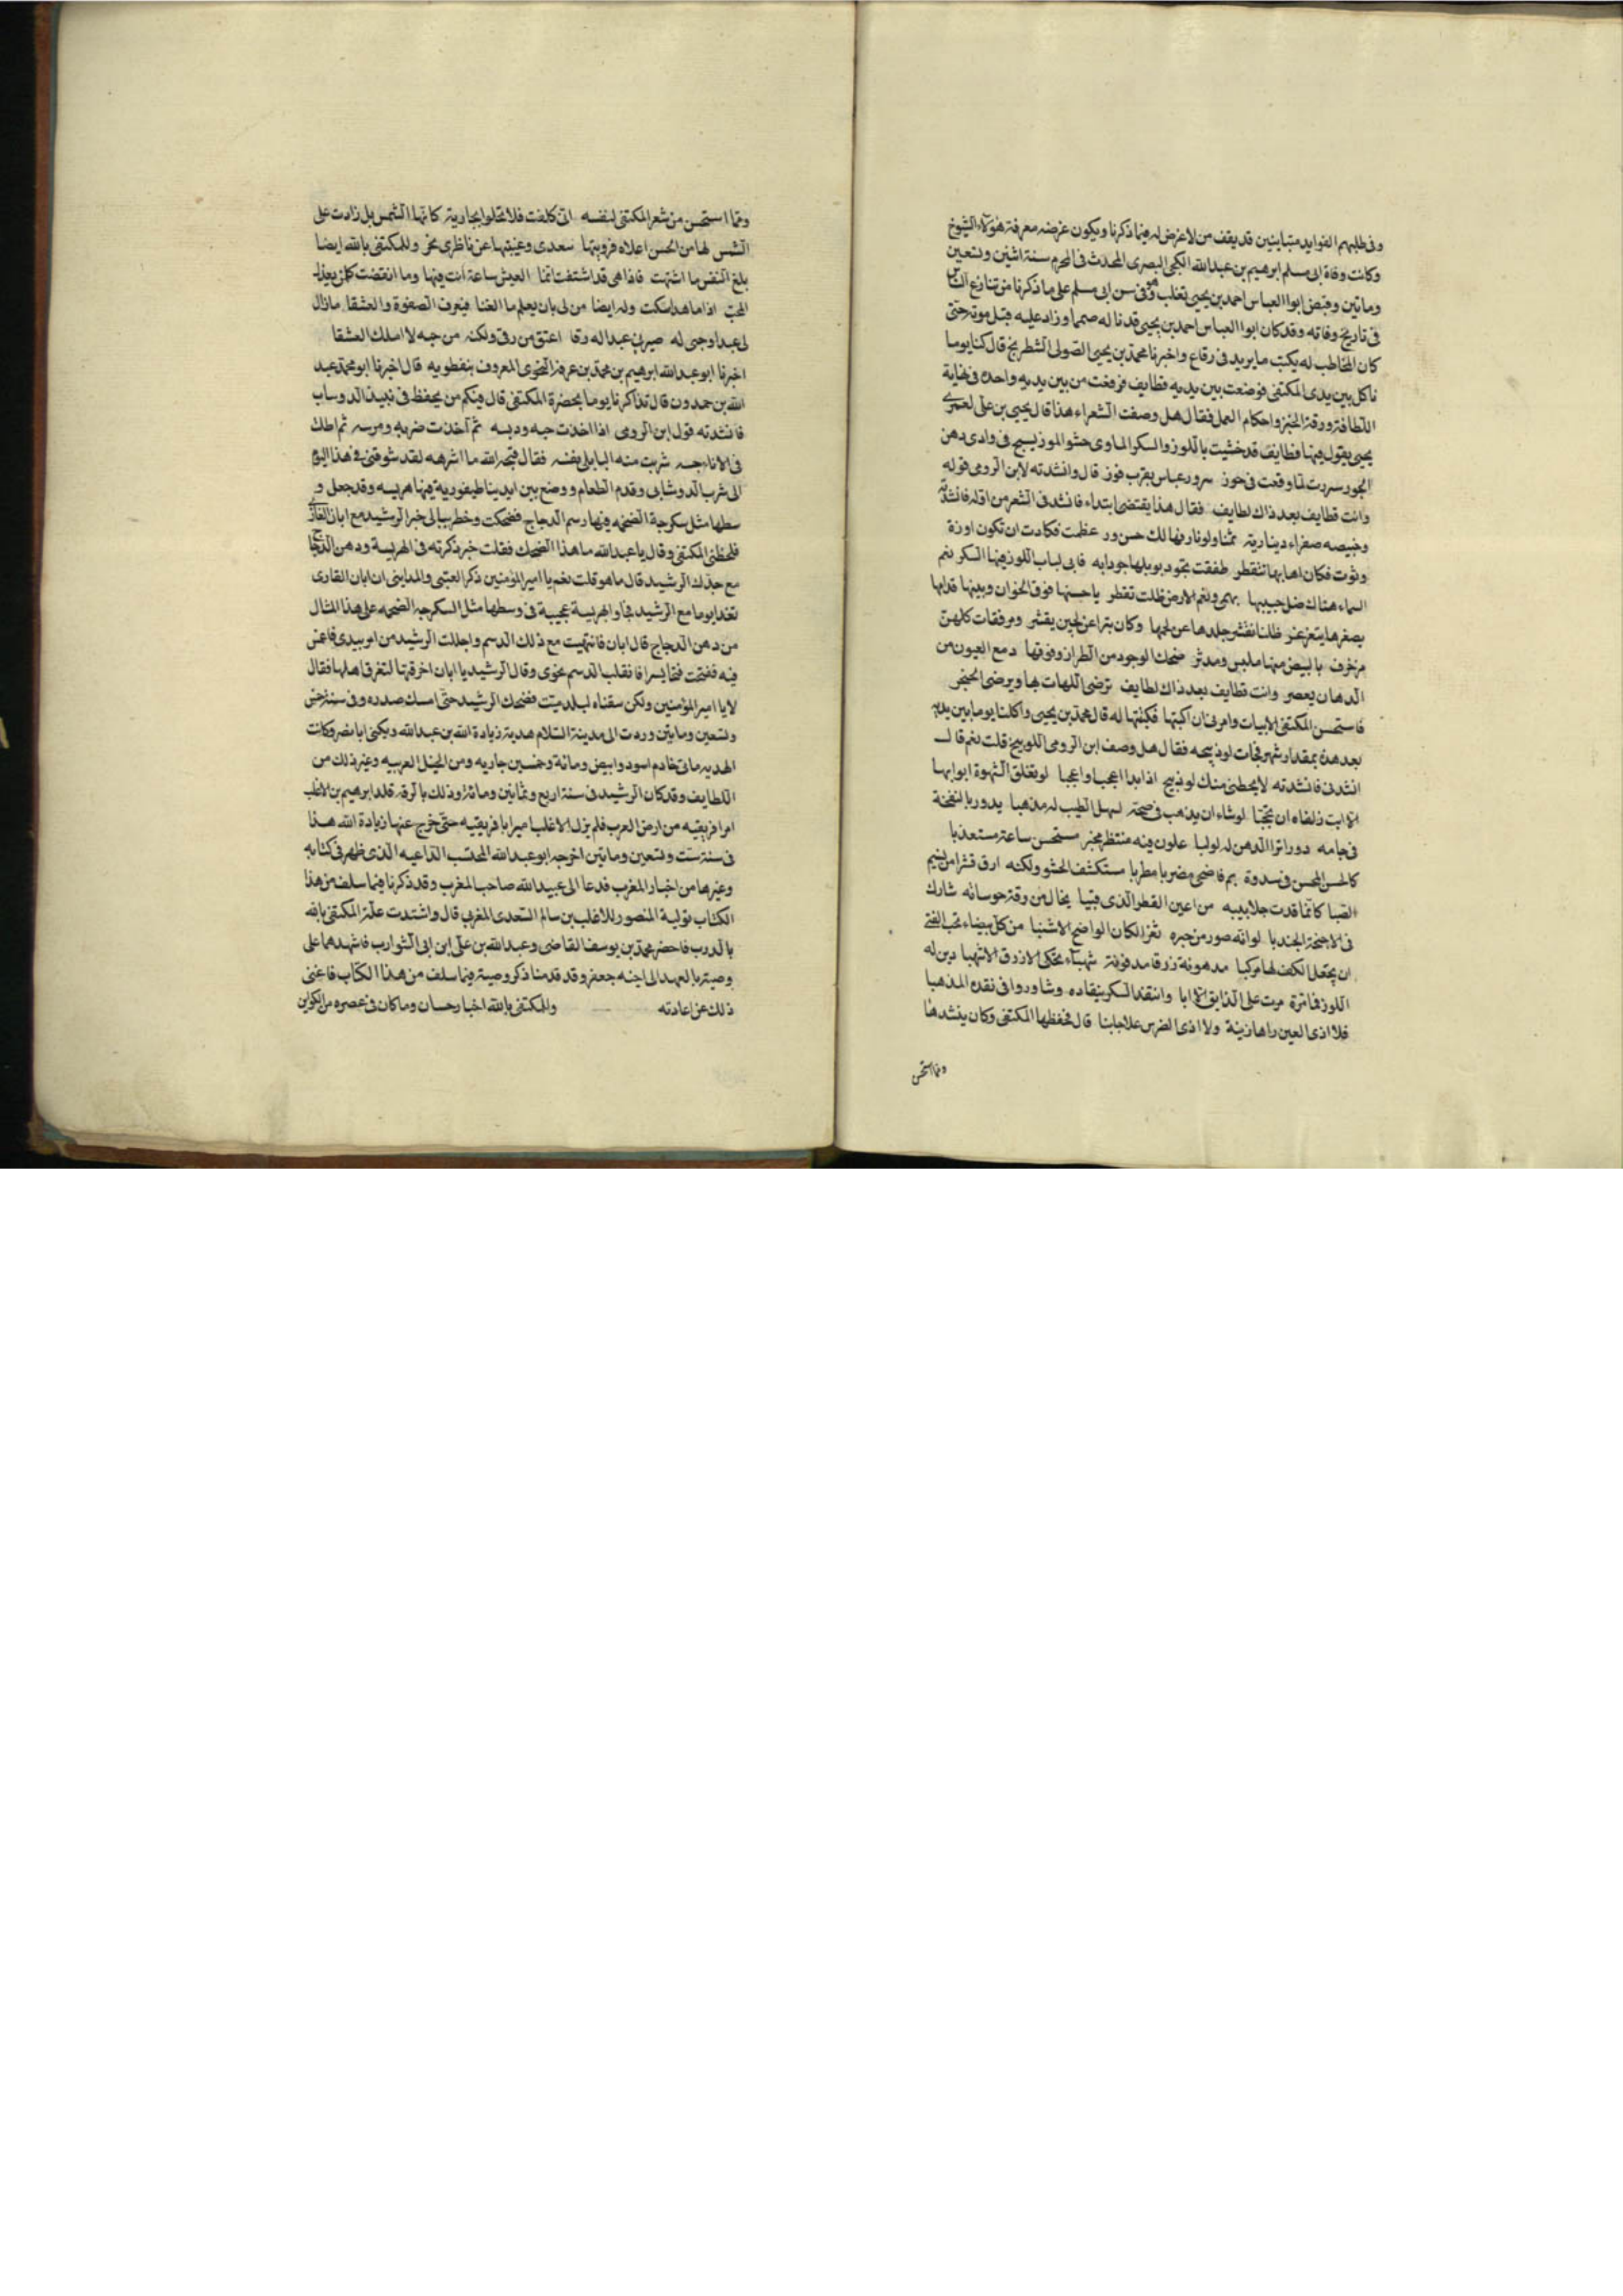 وفى طلبهم الفوايد متباينين قد يقف من لا غرض له فيما ذكرنا ويكون غرضه معرفة هولاء الشيوخ
وكانت وفاة ابى مسلم ابرهيم بن عبد الله الكجى البصرى المحدث فى المحرم سنة اثنين وتسعين
وماتين وقبض ابوا العباس احمد بن يحيى ثعلب وهو فى سن ابى مسلم على ما ذكرنا من تنازع الناس
فى تاريخ وفاته وقد كان ابوا العباس احمد بن يحيى قد ناله صمم وزاد عليه قبل موته حتى
كان المخاطب له يكتب ما يريد فى رقاع واخبرنا محمد بن يحيى الصولى الشطرنجى قال كنا يوما
ناكل بين يدى المكتفى فوضعت بين يديه قطايف فرفعت من بين يديه واحده فى نهاية
اللطافة ورقة الخبز واحكام العمل فقال هل وصفت الشعراء هذا قال يحيى بن على نعم
يحيى يقول فيها قطايف قد خشيت باللوز والسكر الماوى حشو الموز يسبح فى وادى دهن
الجوز سررت لما وقعت فى حوز سرور عباس بقرب فوز قال وانشدته لابن الرومى قوله
وانت قطايف بعد ذاك لطايف فقال هذا يقتضى ابتداء فانشدنى الشعر من اوله فانشدته
وخبيصه صفراء دينارية ثمنا ولونا زفها لك حسن ور عظمت فكادت ان تكون اوزة
وثوت فكان اهابها تتفطر طفقت تجود بوبلها جوذابه فاتى لباب اللوز فيها السكر نعم
السماء هناك ضل صبيبها يهمى ونعم الارض ظلت تمطر يا حسنها فوق الخوان وبيتها قدامها
بصفرها يتغزغز ظلنا نقشر جلدها عن لحمها وكان تبرا عن لجين يقشر ومرفقات كلهن
مزخرف بالبيض منها ملبس ومدثر ضحك الوجود من الطراز وفوقها دمع العيون من
الدهان يعصر وانت قطايف بعد ذاك لطايف ترضى اللهات بها ويرضى الحنجر
فاستحسن المكتفى الابيات وامرنى ان اكبتها فكتبتها له قال محمد بن يحيى واكلنا يوما بين يديه
بعد هذه بمقدار شهر فجات لوزيجه فقال هل وصف ابن الرومى اللوزيج قلت نعم قال
انشدنى فانشدته لا يخطئنى منك لوزيج اذا بدا اعجب او اعجبا لو تغلق الشهوة ابوابها
الا ابت زلفاه ان يحجبا لو شاء ان يذهب فى صخر لسهل الطيب له مذهبا يدور بالنفخة
فى جامه دورا ترا الدهن له لولبا علون فيه منتظر مخبر مستحسن ساعد مستعذبا
كالحسن المحسن فى سدوة يم فاضحى مضربا مطربا مستكشف الحشو ولكنه ارق قشرا من نسيم
الصبا كانما قدت جلابيبه من اعين القطر الذى قببا يخال من رقة خرسانه شارك
فى الاجنحة الجندبا لو انه صور من خبره ثغر الكان الواضح الاشنبا من كل بيضاء يحب الفتى
ان يجعل الكف لها مركبا مدهونة زرقا مدفونة شهباء تحكى الازرق الاشهبا دين له
اللوز فما تره مرت على الذايق الا ابا وانتقد السكر ينقاده وشاوروا فى نقده المذهبا
فلا اذى العين راها زينة ولا اذى الضرس علاها بنا قال فحفظها المكتفى وكان ينشدها
ومما استحسن
ومما استحسن من شعر المكتفى لنفسه انى كلفت فلا تخلوا بجارية كانها الشمس بل زادت على
الشمس لها من الحسن اعلاه فرويتها سعدى وغيبتها عن ناظرى نحر وللمكتفى بالله ايضا
بلغ النفس ما اشتهت فاذا هى قد اشتفت انما العيش ساعة انت فيها وما انقضت كلمن يعذل
المحب اذا ما هدا سكت وله ايضا من لى بان يعلم ما القنا فيعرف الصفوة والعشقا ما زال
لى عبدا وحبى له صيرنى عبدا له رقا اعتق من رقى ولكنه من حبه لا املك العتقا
اخبرنا ابو عبد الله ابرهيم بن محمد بن عرفه النحوى المعروف بنفطويه قال اخبرنا ابو محمد عبد
الله بن حمدون قال تذاكرنا يوما بحضرة المكتفى قال فيكم من يحفظ فى نبيذ الدوساب
فانشدته قول ابن الرومى اذا اخذت حبه ودبسه ثم اخذت ضربه ومرسه ثم اطلت
فى الاناء حبسه شربت منه البابلى نفسه فقال قبحه الله ما اشرهه لقد شوقنى فى هذا اليوم
الى شرب الدوشابى وقدم الطعام ووضع بين ايدينا طيفورية فيها هريسه وقد جعل و
سطها مثل سكرجة الضخمه فيها رسم الدجاج فضحكت وخطر ببالى خبر الرشيد مع ابان القارى
فلحظنى المكتفى وقال يا عبد الله ما هذا الضحك فقلت خبر ذكرته فى الهريسة ودهن الدجاج
مع جدك الرشيد قال ما هو قلت نعم يا امير المؤمنين ذكر العتبى والمداينى ان ابان القارى
تغدا يوما مع الرشيد فجاو الهريسة عجيبة فى وسطها مثل السكرجه الضخمه على هذا المثال
من دهن الدجاج قال ابان فانتهيت مع ذلك الدسم واجللت الرشيد من امر بيدى فاغمس
فيه ففتحت فتحا يسرا فانقلب الدسم نحوى وقال الرشيد يا ابان اخرقتها لتغرق اهلها فقال
لا يا امير المؤمنين ولكن سقناه لبلد ميت فضحك الرشيد حتى امسك صدره وفى سنة خمس
وتسعين وماتين وردت الى مدينة السلام هدية زيادة الله بن عبد الله ويكنى ابا مضر وكانت
الهديه ماتى خادم اسود وابيض ومائة وخمسين جاريه ومن الخيل العربيه وغير ذلك من
اللطايف وقد كان الرشيد فى سنة اربع وثمانين ومائة وذلك بالرقة قلد ابرهيم بن الاغلب
امرا فريقيه من ارض العرب فلم يزل الاغلب اميرا بافريقيه حتى خرج عنها زيادة الله هذا
فى سنة ست وتسعين وماتين اخرجه ابو عبد الله المحتسب الداعيه الذى ظهر فى كتابه
وغيرها من اخبار المغرب فدعا الى عبيد الله صاحب المغرب وقد ذكرنا فيما سلف من هذا
الكتاب تولية المنصور للاغلب بن سالم السعدى المغرب قال واشتدت علة المكتفى بالله
بالدرب فاحضر محمد بن يوسف القاضى وعبد الله بن على ابن ابى الشوارب فاشهدهما على
وصيته بالعهد الى اخيه جعفر وقد قدمنا ذكر وصيته فيما سلف من هذا الكتاب فاغنى
ذلك عن اعادته والمكتفى بالله اخبار حسان وما كان فى عصره من الكواين